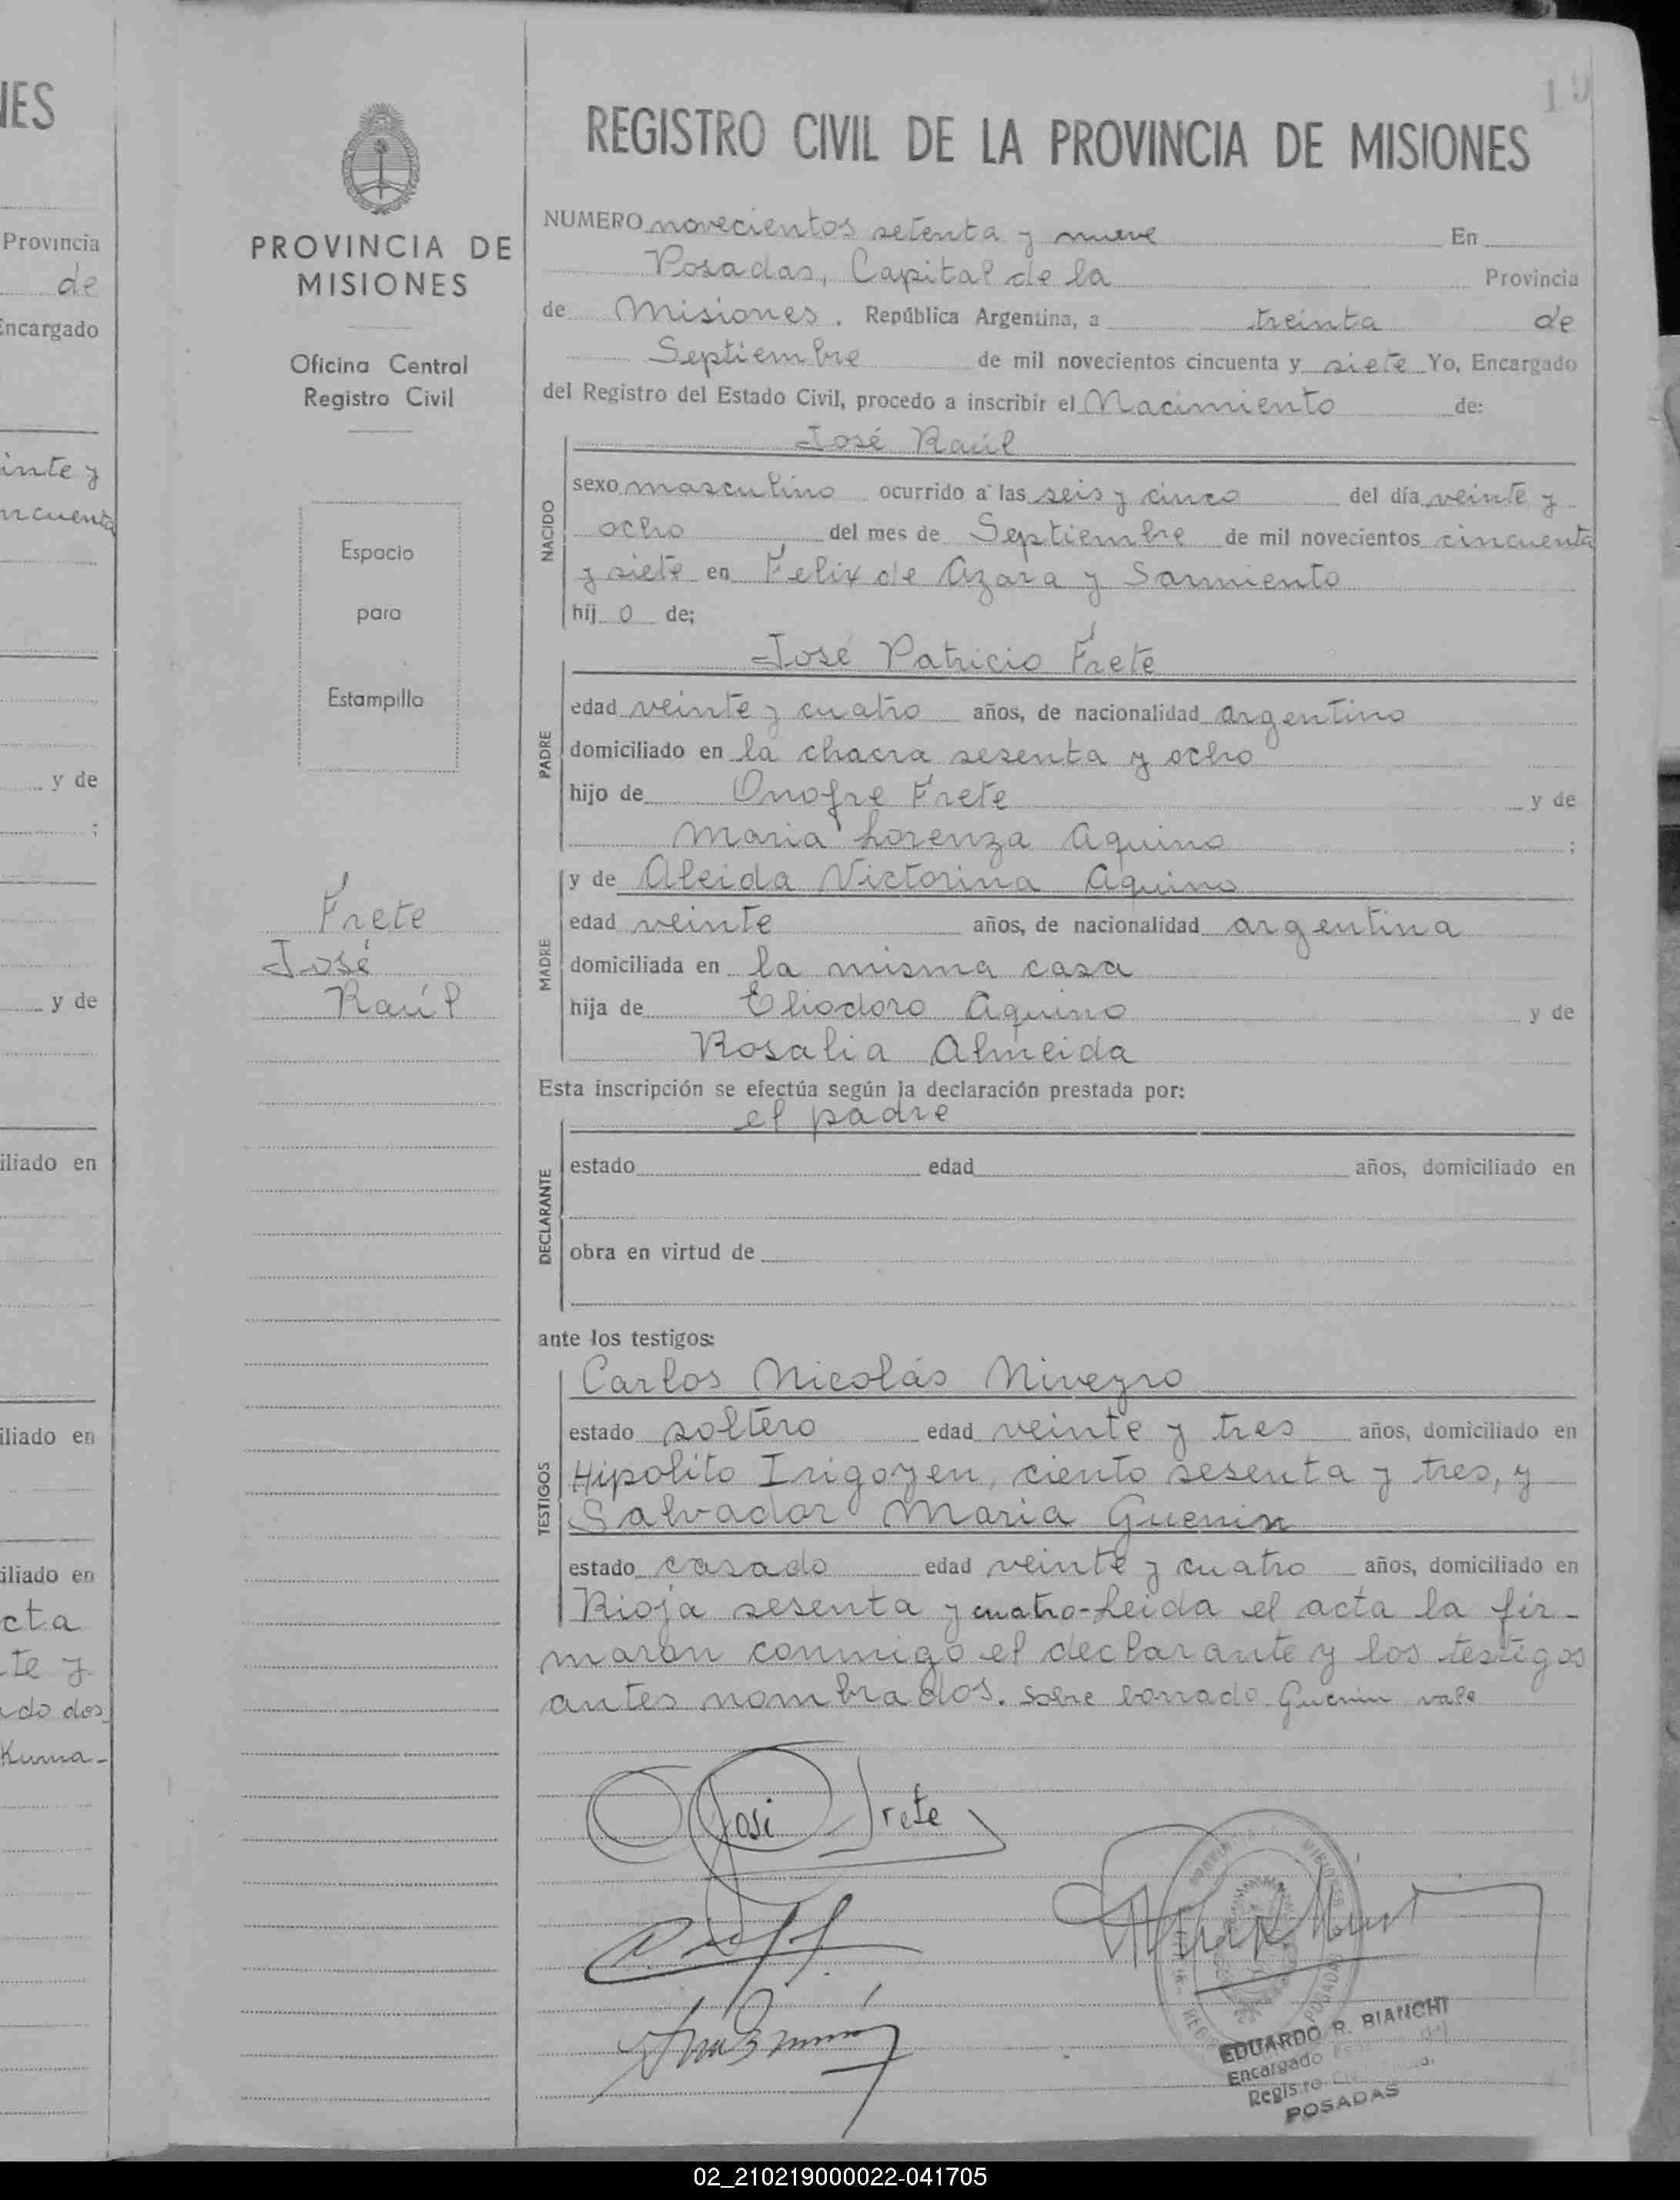 IES
Provincia
de
Encargado
inte y
ncuenta
y de
;
y de
iliado en
iliado en
iliado en
cta
te y
do dos,
Kuma-
PROVINCIA DE
MISIONES
Oficina Central
Registro Civil
Espacio
para
Estampilla
Frete
José
Raúl
REGISTRO CIVIL DE LA PROVINCIA DE MISIONES
NUMERO novecientos setenta y nueve En
Posadas, Capital de la Provincia
de Misiones. República Argentina, a treinta de
Septiembre de mil novecientos cincuenta y siete Yo, Encargado
del Registro del Estado Civil, procedo a inscribir el Nacimiento de:
José Raúl
NACIDO
sexo masculino ocurrido a las seis y cinco del día veinte y
ocho del mes de Septiembre de mil novecientos cincuenta
y siete en Felix de Azara y Sarmiento
hij o de;
José Patricio Frete
PADRE
edad veinte y cuatro años, de nacionalidad argentino
domiciliado en la chacra sesenta y ocho
hijo de Onofre Frete y de
Maria Lorenza Aquino ;
y de Aleida Victorina Aquino
MADRE
edad veinte años, de nacionalidad argentina
domiciliada en la misma casa
hija de Eliodoro Aquino y de
Rosalia Almeida
Esta inscripción se efectúa según la declaración prestada por:
el padre
DECLARANTE
estado edad años, domiciliado en
obra en virtud de
ante los testigos:
TESTIGOS
Carlos Nicolás Niveyro
estado soltero edad veinte y tres años, domiciliado en
Hipolito Irigoyen, ciento sesenta y tres, y
Salvador Maria Guenin
estado casado edad veinte y cuatro años, domiciliado en
Rioja sesenta y cuatro-Leida el acta la fir-
maron conmigo el declarante y los testigos
antes nombrados. Sobre borrado Guenin vale
José Frete
EDUARDO R. BIANCHI
Encargado
Registro
POSADAS
02_210219000022-041705